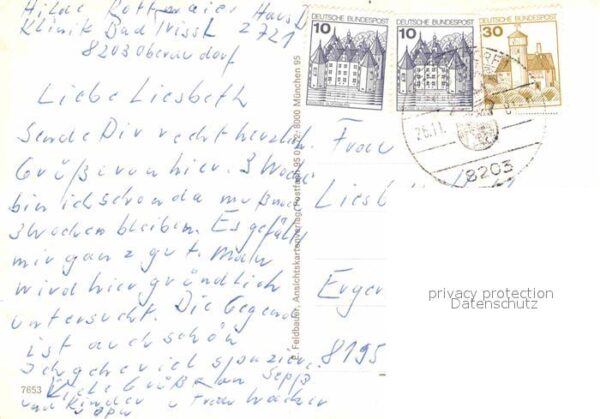 Hilde Haus D
Klinik Bad Trissl 2721
8203 Oberaudorf
Liebe Liesbeth
Sende Dir recht herzlich
Grüße von hier. 3 Woche
bin ich schon da muß noch
3 Wochen bleiben. Es gefällt
mir ganz gut. Man
wird hier gründlich
untersucht. Die Gegend
ist auch schön
Ich gehe viel spaziere
Viele Grüße an Sepp
und Kinder u Frau
7653
Feldbauer, Ansichtskartenverlag, Postfach 95 01 22, 8000 München 95
DEUTSCHE BUNDESPOST
10
DEUTSCHE BUNDESPOST
10
DEUTSCHE BUNDESPOST
30
26.11.
8203
Frau
Liesb
8195
privacy protection
Datenschutz